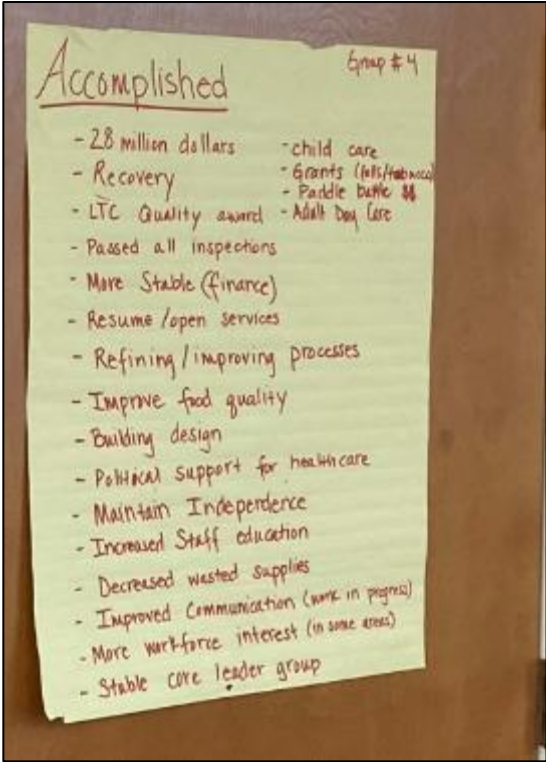 Group # 4
Accomplished
- 28 million dollars
- Recovery
- LTC Quality award
- Passed all inspections
- More Stable (finance)
- Resume/open services
- Refining/improving processes
- Improve food quality
- Building design
- Political support for healthcare
- Maintain Independence
- Increased Staff education
- Decreased wasted supplies
- Improved Communication (work in progress)
- More workforce interest (in some areas)
- Stable core leader group
- child care
- Grants (falls/tobacco)
- Paddle battle $$
- Adult Day Care